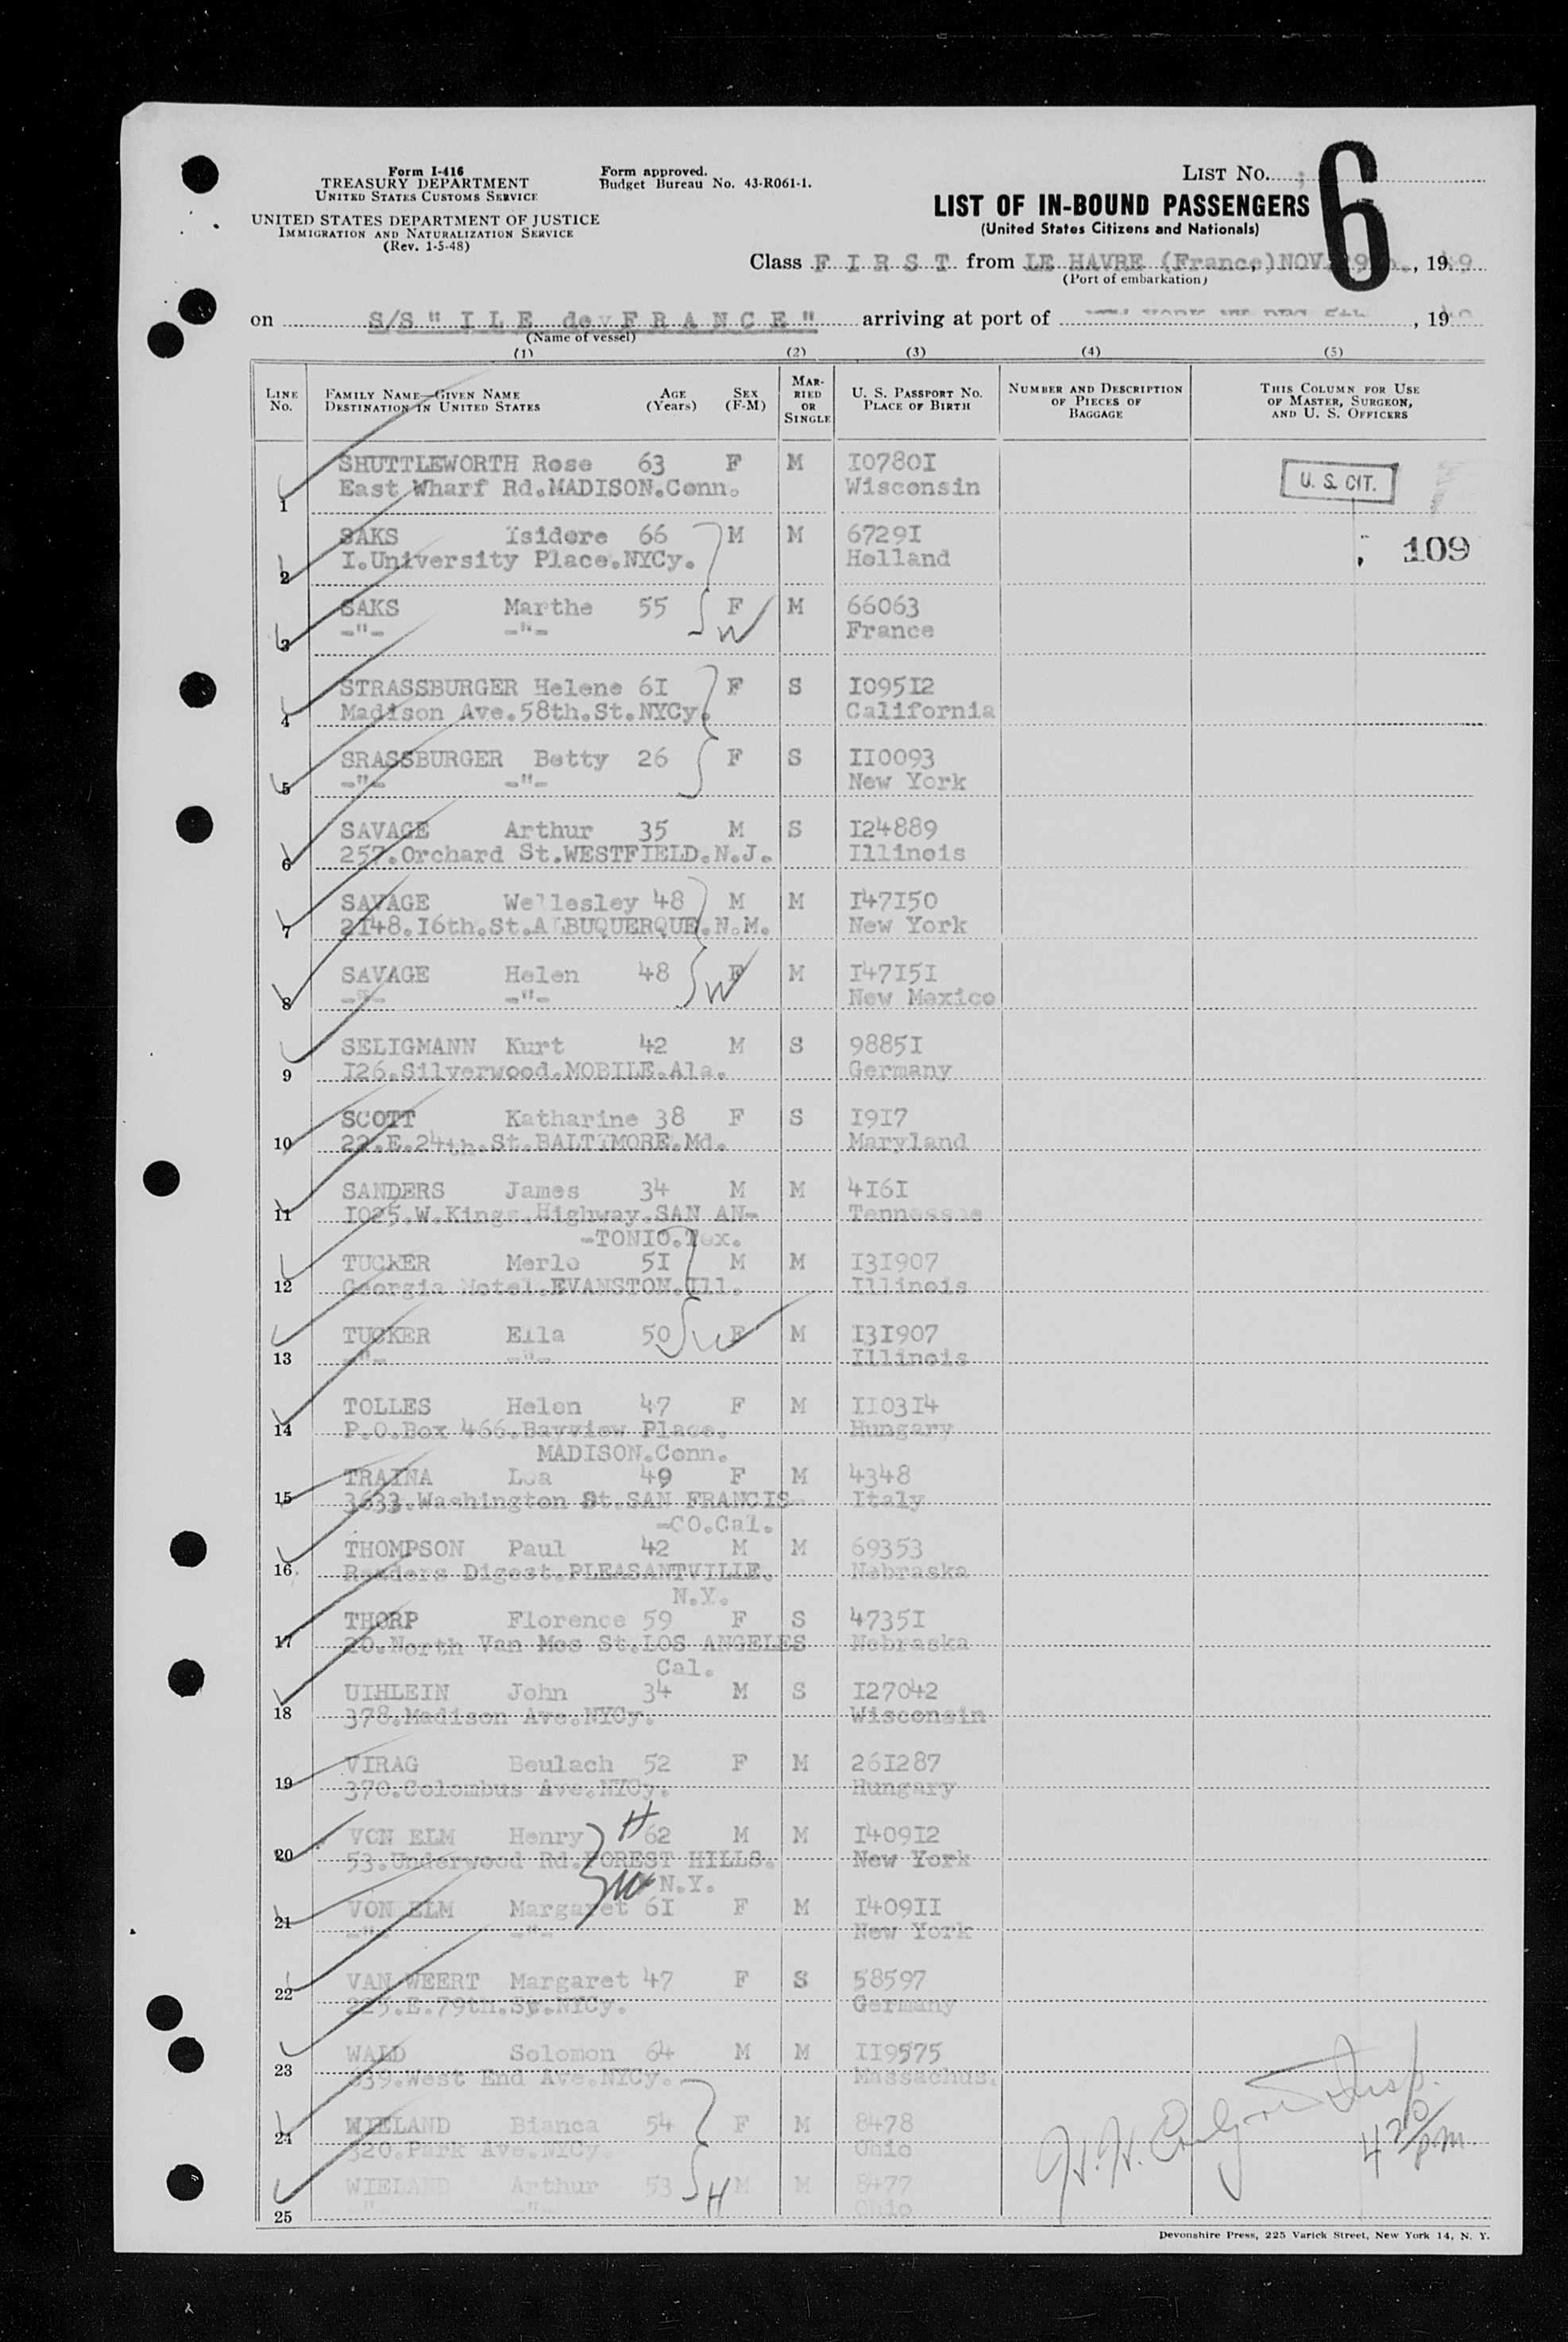 Form I-416
TREASURY DEPARTMENT
UNITED STATES CUSTOMS SERVICE
UNITED STATES DEPARTMENT OF JUSTICE
IMMIGRATION AND NATURALIZATION SERVICE
(Rev. 1-5-48)
Form approved.
Budget Bureau No. 43-R061-1.
LIST No. 6
LIST OF IN-BOUND PASSENGERS
(United States Citizens and Nationals)
Class F I R S T from LE HAVRE (France) NOV. , 19 9
(Port of embarkation)
on S/S " I L E de F R A N C E " arriving at port of , 19
(Name of vessel)
(1) (2) (3) (4) (5)
LINE No. FAMILY NAME—GIVEN NAME DESTINATION IN UNITED STATES AGE (Years) SEX (F-M) MARRIED OR SINGLE U. S. PASSPORT NO. PLACE OF BIRTH NUMBER AND DESCRIPTION OF PIECES OF BAGGAGE THIS COLUMN FOR USE OF MASTER, SURGEON, AND U. S. OFFICERS
1 SHUTTLEWORTH Rose 63 F M I0780I
East Wharf Rd.MADISON.Conn. Wisconsin
U. S. CIT.
2 SAKS Isidore 66 M M 6729I
I.University Place.NYCy. Holland
109
3 SAKS Marthe 55 F M 66063
-"- -"- France
W
4 STRASSBURGER Helene 6I F S I095I2
Madison Ave.58th.St.NYCy. California
5 SRASSBURGER Betty 26 F S II0093
-"- -"- New York
6 SAVAGE Arthur 35 M S I24889
257.Orchard St.WESTFIELD.N.J. Illinois
7 SAVAGE Wellesley 48 M M I47I50
2I48.I6th.St.ALBUQUERQUE.N.M. New York
8 SAVAGE Helen 48 F M I47I5I
-"- -"- New Mexico
W
9 SELIGMANN Kurt 42 M S 9885I
I26.Silverwood.MOBILE.Ala. Germany
10 SCOTT Katharine 38 F S I9I7
22.E.24th.St.BALTIMORE.Md. Maryland
11 SANDERS James 34 M M 4I6I
I025.W.Kings.Highway.SAN AN- Tennessee
-TONIO.Tex.
12 TUCKER Merle 5I M M I3I907
Georgia Hotel.EVANSTON.Ill. Illinois
13 TUCKER Ella 50 F M I3I907
-"- -"- Illinois
W
14 TOLLES Helen 47 F M II03I4
P.O.Box 466.Bayview Place. Hungary
MADISON.Conn.
15 TRAINA Lea 49 F M 4348
3633.Washington St.SAN FRANCIS- Italy
-CO.Cal.
16 THOMPSON Paul 42 M M 69353
Readers Digest.PLEASANTVILLE. Nebraska
N.Y.
17 THORP Florence 59 F S 4735I
20.North Van Mes St.LOS ANGELES Nebraska
Cal.
18 UIHLEIN John 34 M S I27042
378.Madison Ave.NYCy. Wisconsin
19 VIRAG Beulach 52 F M 26I287
370.Colombus Ave.NYCy. Hungary
20 VON ELM Henry H 62 M M I409I2
53.Underwood Rd.FOREST HILLS. New York
W N.Y.
21 VON ELM Margaret 6I F M I409II
-"- -"- New York
22 VAN WEERT Margaret 47 F S 58597
225.E.79th.St.NYCy. Germany
23 WALD Solomon 64 M M II9575
839.West End Ave.NYCy. Massachus.
24 WIELAND Bianca 54 F M 8478
320.Park Ave.NYCy. Ohio
25 WIELAND Arthur 53 H M M 8477
" -"- Ohio
Insp.
4 20/pm
Devonshire Press, 225 Varick Street, New York 14, N. Y.